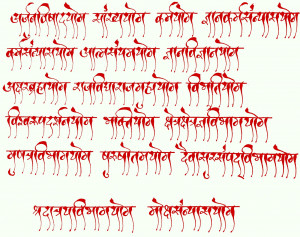 अर्जुनविषादयोग सांख्ययोग कर्मयोग ज्ञानकर्मसंन्यासयोग
कर्मसंन्यासयोग आत्मसंयमयोग ज्ञानविज्ञानयोग
अक्षरब्रह्मयोग राजविद्याराजगुह्ययोग विभूतियोग
विश्वरूपदर्शनयोग भक्तियोग क्षेत्रक्षेत्रज्ञविभागयोग
गुणत्रयविभागयोग पुरुषोत्तमयोग दैवासुरसंपद्विभागयोग
श्रद्धात्रयविभागयोग मोक्षसंन्यासयोग